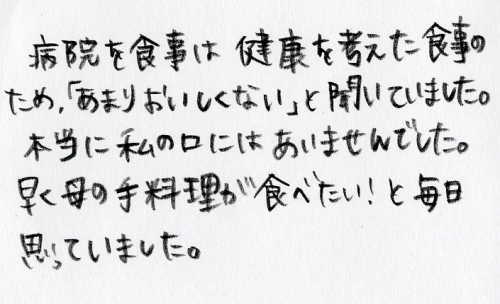 病院を食事は 健康を考えた食事の
ため,「あまりおいしくない」と聞いていました。
本当に私の口にはあいませんでした。
早く母の手料理が食べたい!と毎日
思っていました。